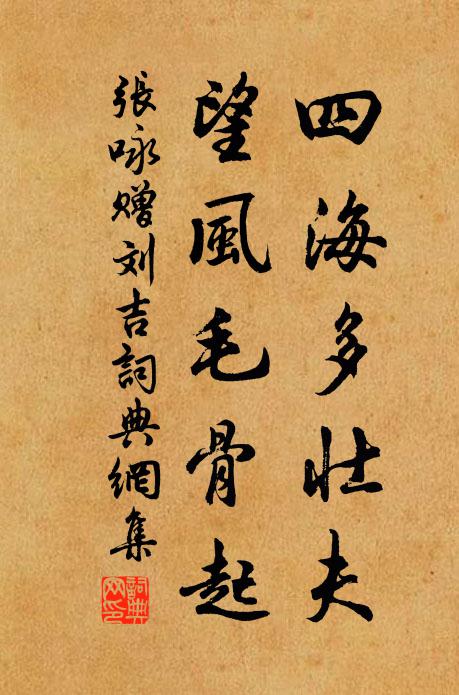 四海多壮夫
望風毛骨起
張咏贈刘吉詞典網集
詞典網印